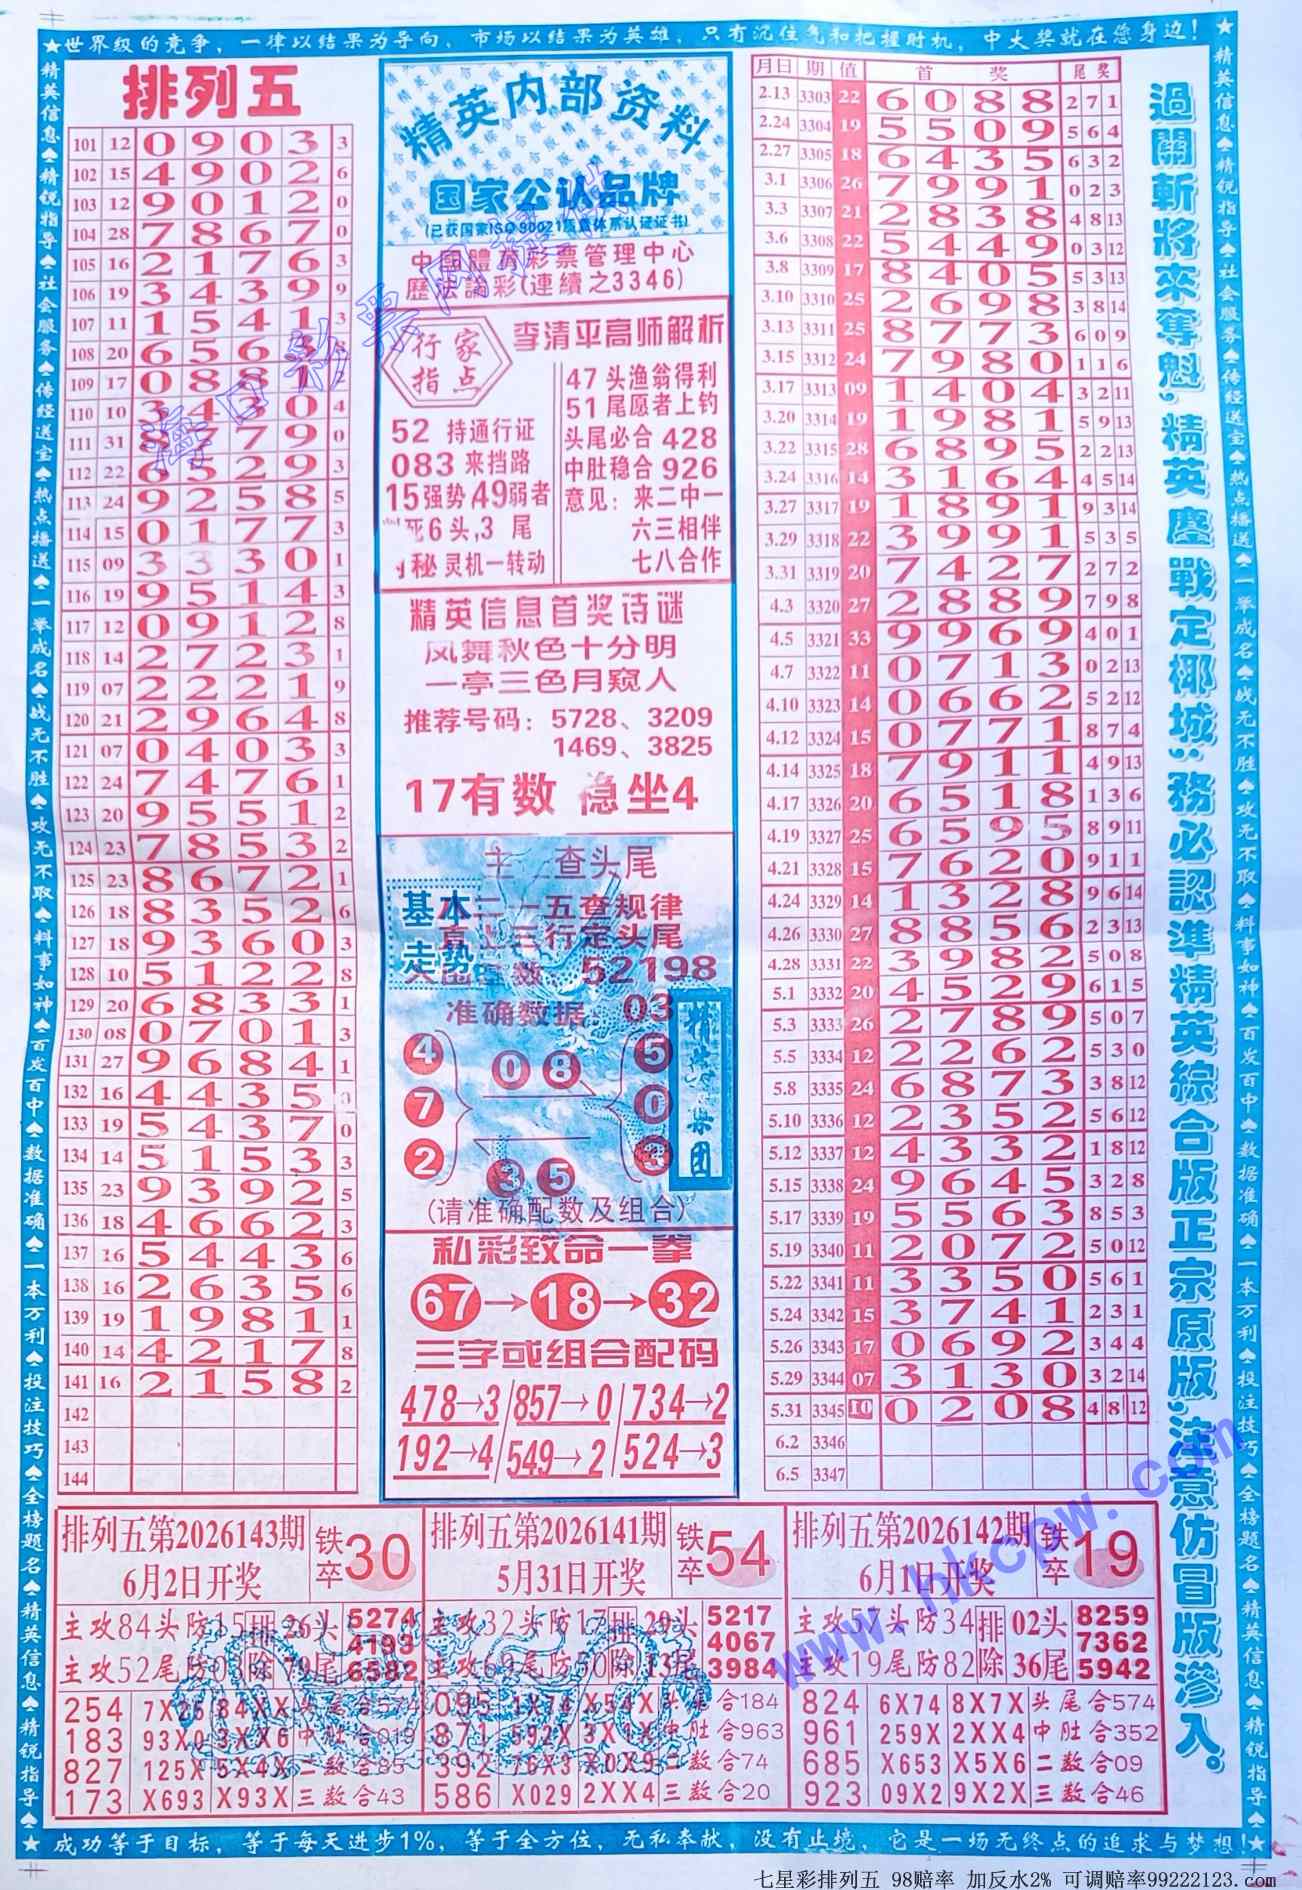 ★世界级的竞争，一律以结果为导向，市场以结果为英雄，只有沉住气和把握时机，中大奖就在您身边！★
精英信息♠精锐指导♠社会服务♠传经送宝♠热点播送♠一举成名♠战无不胜♠攻无不取♠料事如神♠百发百中♠数据准确♠一本万利♠投注技巧♠全榜题名♠精英信息♠精锐指导♠
排列五
101 12 0 9 0 3 3
102 15 4 9 0 2 6
103 12 9 0 1 2 0
104 28 7 8 6 7 0
105 16 2 1 7 6 3
106 19 3 4 3 9 9
107 11 1 5 4 1 3
108 20 6 5 6 3
109 17 0 8 8 1
110 10 3 4 3 0 4
111 31 8 7 7 9 0
112 22 6 5 2 9 3
113 24 9 2 5 8 5
114 15 0 1 7 7 3
115 09 3 3 3 0 1
116 19 9 5 1 4 3
117 12 0 9 1 2 8
118 14 2 7 2 3 1
119 07 2 2 2 1 9
120 21 2 9 6 4 8
121 07 0 4 0 3 3
122 24 7 4 7 6 1
123 20 9 5 5 1 2
124 23 7 8 5 3 2
125 23 8 6 7 2 1
126 18 8 3 5 2 6
127 18 9 3 6 0 3
128 10 5 1 2 2 8
129 20 6 8 3 3 1
130 08 0 7 0 1 3
131 27 9 6 8 4 1
132 16 4 4 3 5
133 19 5 4 3 7 0
134 14 5 1 5 3 3
135 23 9 3 9 2 5
136 18 4 6 6 2 3
137 16 5 4 4 3 6
138 16 2 6 3 5 6
139 19 1 9 8 1 1
140 14 4 2 1 7 8
141 16 2 1 5 8 2
142
143
144
精英内部资料
国家公认品牌
(已获国家ISO 90021质量体系认证证书)
中國體育彩票管理中心
歷法論彩(連續之3346)
行家
指点
李清平高师解析
52 持通行证
083 来挡路
15强势49弱者
死6头,3 尾
秘 灵机一转动
47 头渔翁得利
51 尾愿者上钓
头尾必合 428
中肚稳合 926
意见：来二中一
六三相伴
七八合作
精英信息首奖诗谜
凤舞秋色十分明
一亭三色月窥人
推荐号码：5728、3209
1469、3825
17有数 稳坐4
基本
走势
查头尾
五查规律
三行定头尾
52198
准确数据 03
4 7 2
0 8
3 5
5 0 3
精英集团
(请准确配数及组合)
私彩致命一拳
67→18→32
三字或组合配码
478→3/857→0/734→2
192→4/549→2/524→3
月日 期 值 首 奖 尾 奖
2.13 3303 22 6 0 8 8 2 7 1
2.24 3304 19 5 5 0 9 5 6 4
2.27 3305 18 6 4 3 5 6 3 2
3.1 3306 26 7 9 9 1 0 2 3
3.3 3307 21 2 8 3 8 4 8 13
3.6 3308 22 5 4 4 9 0 3 12
3.8 3309 17 8 4 0 5 5 3 13
3.10 3310 25 2 6 9 8 3 8 14
3.13 3311 25 8 7 7 3 6 0 9
3.15 3312 24 7 9 8 0 1 1 6
3.17 3313 09 1 4 0 4 3 2 11
3.20 3314 19 1 9 8 1 5 9 13
3.22 3315 28 6 8 9 5 2 2 13
3.24 3316 14 3 1 6 4 4 5 14
3.27 3317 19 1 8 9 1 9 3 14
3.29 3318 22 3 9 9 1 5 3 5
3.31 3319 20 7 4 2 7 2 7 2
4.3 3320 27 2 8 8 9 7 9 8
4.5 3321 33 9 9 6 9 4 0 1
4.7 3322 11 0 7 1 3 0 2 13
4.10 3323 14 0 6 6 2 5 2 12
4.12 3324 15 0 7 7 1 8 7 4
4.14 3325 18 7 9 1 1 4 9 13
4.17 3326 20 6 5 1 8 1 3 6
4.19 3327 25 6 5 9 5 8 9 11
4.21 3328 15 7 6 2 0 9 1 1
4.24 3329 14 1 3 2 8 9 6 14
4.26 3330 27 8 8 5 6 2 3 13
4.28 3331 22 3 9 8 2 5 0 8
5.1 3332 20 4 5 2 9 6 1 5
5.3 3333 26 2 7 8 9 5 0 7
5.5 3334 12 2 2 6 2 5 3 0
5.8 3335 24 6 8 7 3 3 8 12
5.10 3336 12 2 3 5 2 5 6 12
5.12 3337 12 4 3 3 2 1 8 12
5.15 3338 24 9 6 4 5 3 2 8
5.17 3339 19 5 5 6 3 8 5 3
5.19 3340 11 2 0 7 2 5 0 12
5.22 3341 11 3 3 5 0 5 6 1
5.24 3342 15 3 7 4 1 2 3 1
5.26 3343 17 0 6 9 2 3 4 4
5.29 3344 07 3 1 3 0 3 2 14
5.31 3345 10 0 2 0 8 4 8 12
6.2 3346
6.5 3347
過關斬將來奪魁，精英鏖戰定椰城"務必認準精英綜合版正宗原版，注意仿冒版滲入。
精英信息♠精锐指导♠社会服务♠传经送宝♠热点播送♠一举成名♠战无不胜♠攻无不取♠料事如神♠百发百中♠数据准确♠一本万利♠投注技巧♠全榜题名♠精英信息♠精锐指导♠
排列五第2026143期
6月2日开奖
铁卒 30
主攻84头防15 排 26头
主攻52尾防03 除 79尾
5274
4193
6582
254 7X26 84XX 头尾合574
183 93X0 3XX6 中肚合019
827 125X 5X4X 二数合85
173 X693 X93X 三数合43
排列五第2026141期
5月31日开奖
铁卒 54
主攻32头防17 排 29头
主攻69尾防50 除 13尾
5217
4067
3984
095 1X74 X54X 头尾合184
871 592X 3X1X 中肚合963
392 76X3 X0X9 二数合74
586 X029 2XX4 三数合20
排列五第2026142期
6月1日开奖
铁卒 19
主攻57头防34 排 02头
主攻19尾防82 除 36尾
8259
7362
5942
824 6X74 8X7X 头尾合574
961 259X 2XX4 中肚合352
685 X653 X5X6 二数合09
923 09X2 9X2X 三数合46
★成功等于目标，等于每天进步1%，等于全方位，无私奉献，没有止境，它是一场无终点的追求与梦想！★
海口彩票网
www.hkcpw.com
七星彩排列五 98赔率 加反水2% 可调赔率99222123.com